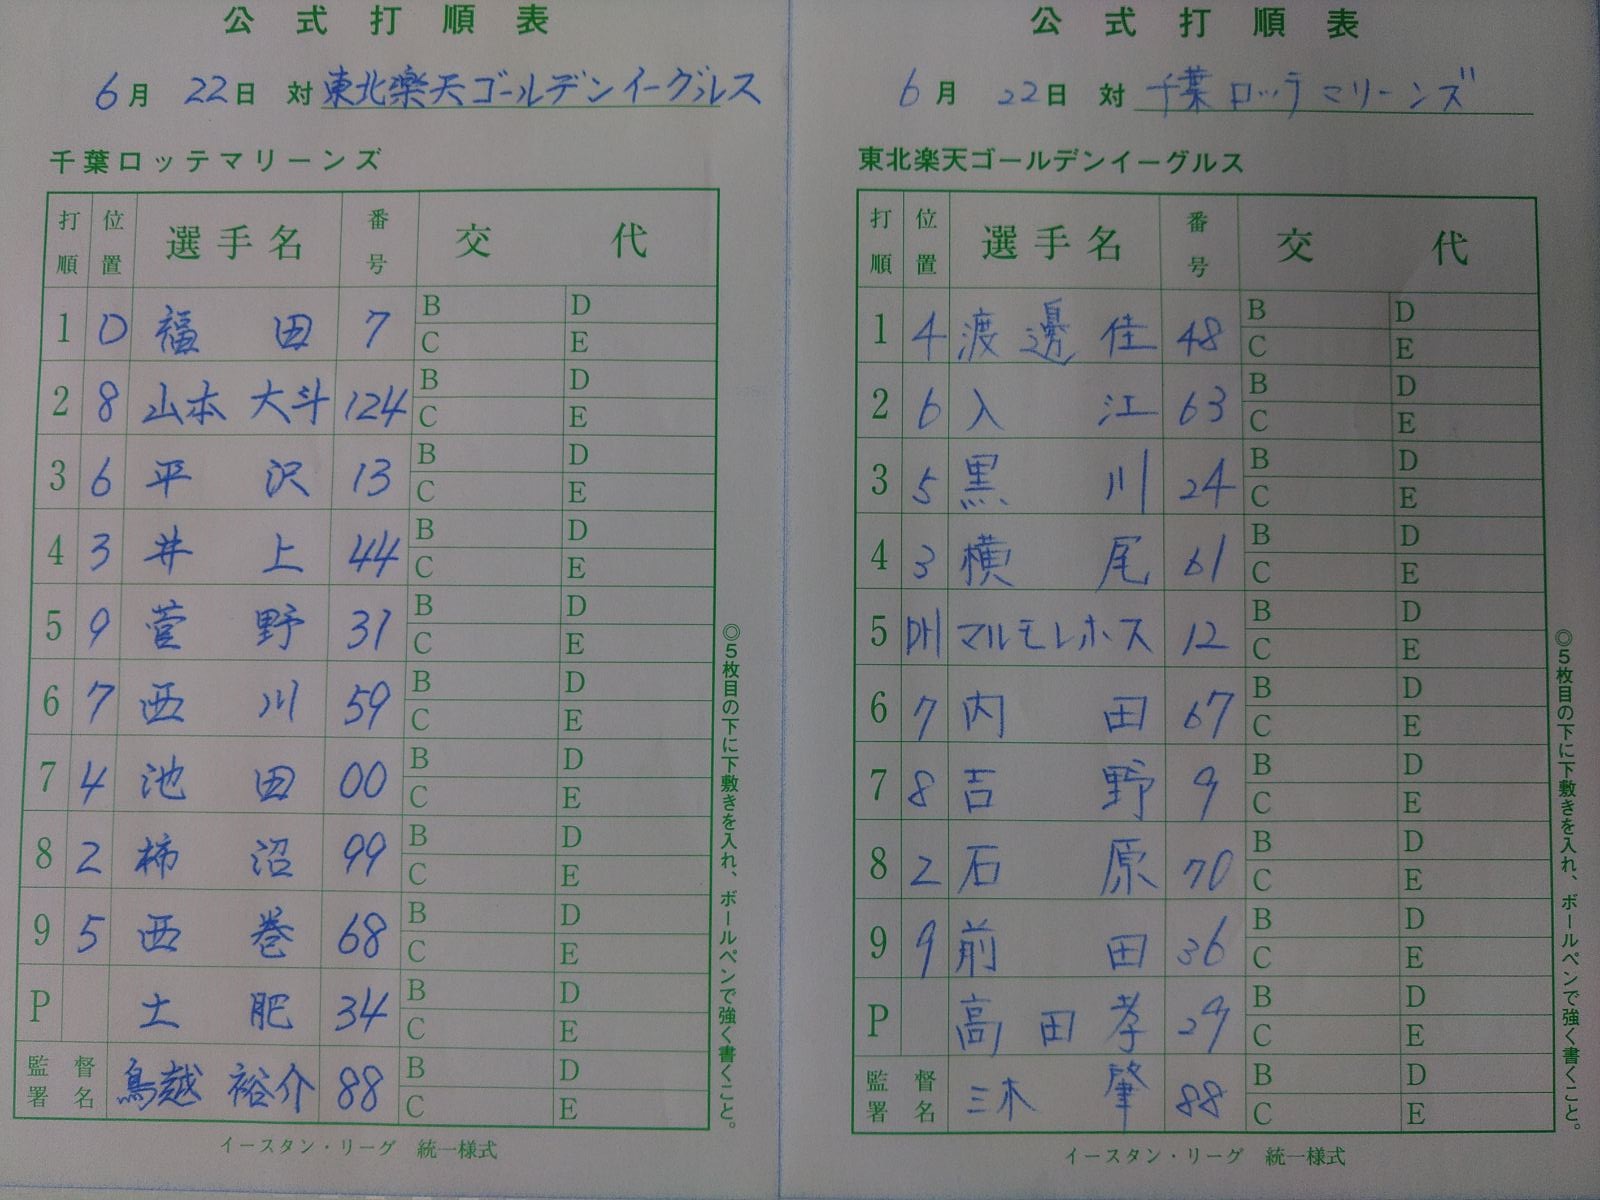 公式打順表
6月 22日 対 東北楽天ゴールデンイーグルス
千葉ロッテマリーンズ
打順 位置 選手名 番号 交代
1 D 福田 7 B D C E
2 8 山本大斗 124 B D C E
3 6 平沢 13 B D C E
4 3 井上 44 B D C E
5 9 菅野 31 B D C E
6 7 西川 59 B D C E
7 4 池田 00 B D C E
8 2 柿沼 99 B D C E
9 5 西巻 68 B D C E
P 土肥 34 B D C E
監督署名 鳥越裕介 88 B D C E
◎5枚目の下に下敷きを入れ、ボールペンで強く書くこと。
イースタン・リーグ 統一様式
公式打順表
6月 22日 対 千葉ロッテマリーンズ
東北楽天ゴールデンイーグルス
打順 位置 選手名 番号 交代
1 4 渡邊佳 48 B D C E
2 6 入江 63 B D C E
3 5 黒川 24 B D C E
4 3 横尾 61 B D C E
5 DH マルモレホス 12 B D C E
6 7 内田 67 B D C E
7 8 吉野 9 B D C E
8 2 石原 70 B D C E
9 9 前田 36 B D C E
P 高田孝 29 B D C E
監督署名 三木肇 88 B D C E
◎5枚目の下に下敷きを入れ、ボールペンで強く書くこと。
イースタン・リーグ 統一様式